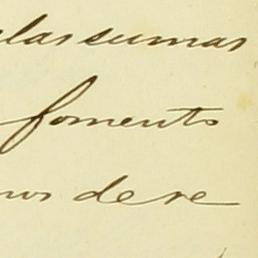 las sumas
fomento
nos de re